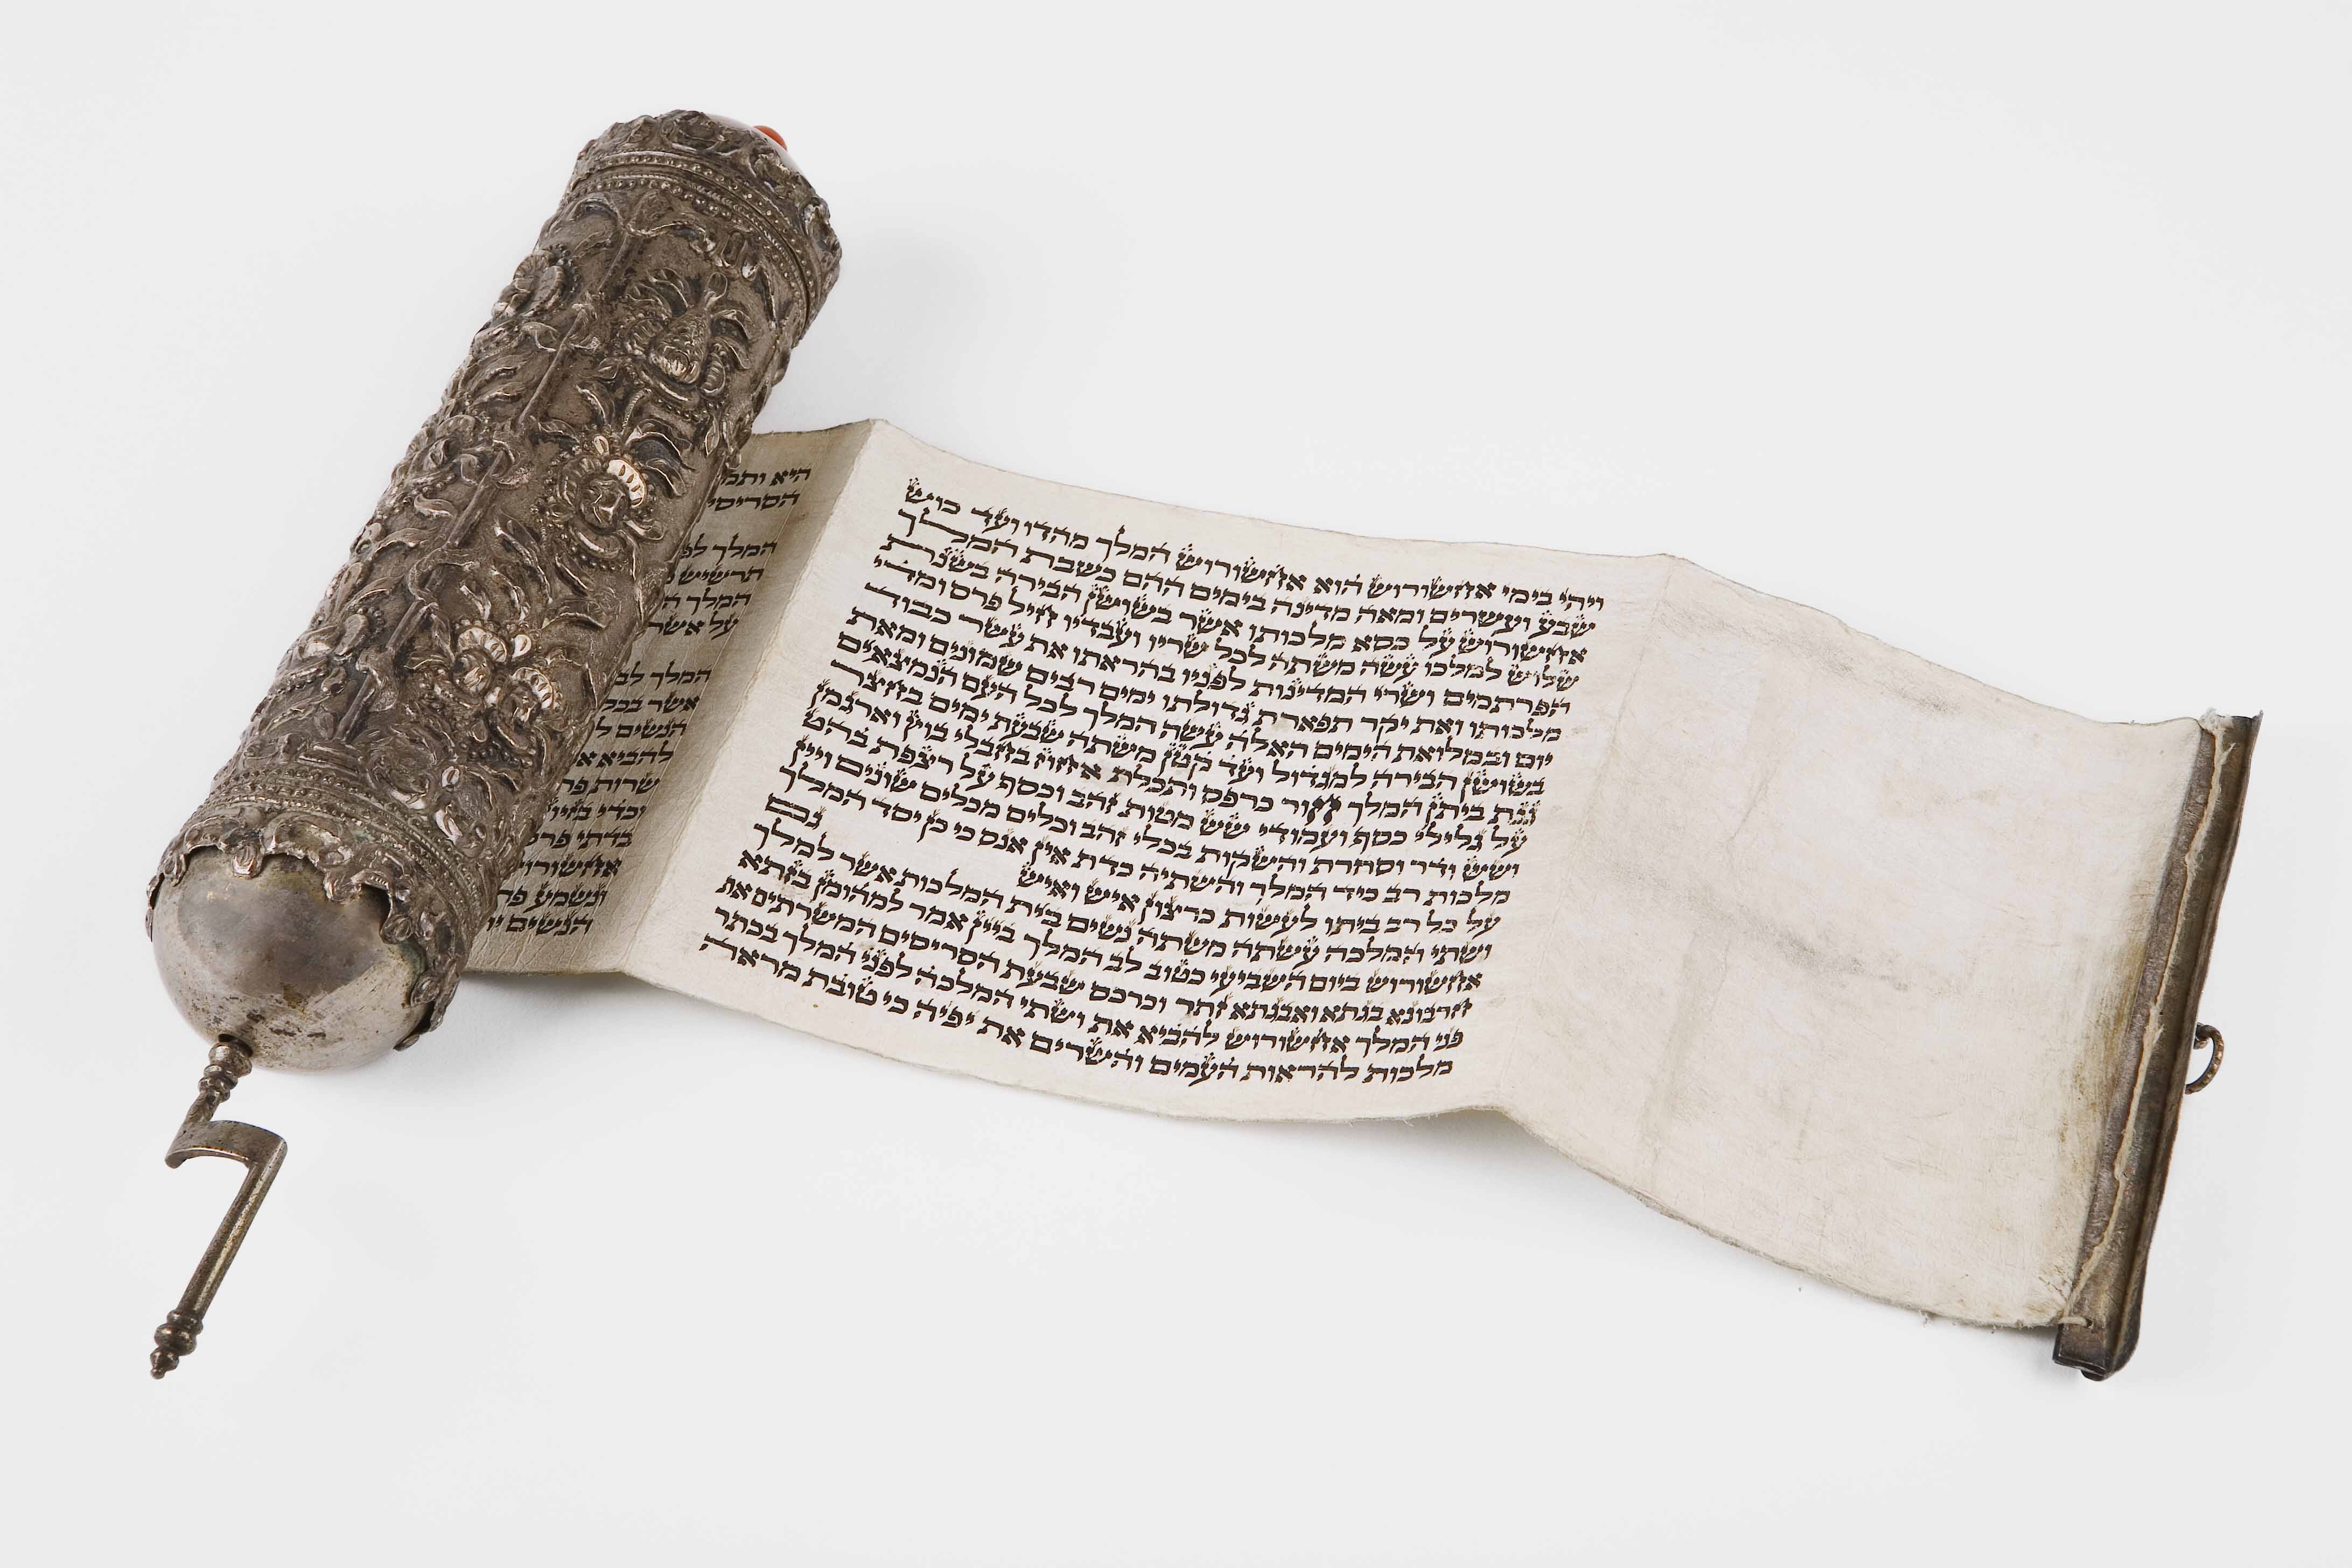 ויהי בימי אחשורוש הוא אחשורוש המלך מהדו ועד כוש
שבע ועשרים ומאה מדינה בימים ההם כשבת המלך
אחשורוש על כסא מלכותו אשר בשושן הבירה בשנת
שלוש למלכו עשה משתה לכל שריו ועבדיו חיל פרס ומדי
הפרתמים ושרי המדינות לפניו בהראתו את עשר כבוד
מלכותו ואת יקר תפארת גדולתו ימים רבים שמונים ומאת
יום ובמלואת הימים האלה עשה המלך לכל העם הנמצאים
בשושן הבירה למגדול ועד קטן משתה שבעת ימים בחצר
גנת ביתן המלך חור כרפס ותכלת אחוז בחבלי בוץ וארגמן
על גלילי כסף ועמודי שש מטות זהב וכסף על רצפת בהט
ושש ודר וסחרת והשקות בכלי זהב וכלים מכלים שונים ויין
מלכות רב כיד המלך והשתיה כדת אין אנס כי כן יסד המלך
על כל רב ביתו לעשות כרצון איש ואיש גם
ושתי המלכה עשתה משתה נשים בית המלכות אשר למלך
אחשורוש ביום השביעי כטוב לב המלך ביין אמר למהומן בזתא
חרבונא בגתא ואבגתא זתר וכרכס שבעת הסריסים המשרתים את
פני המלך אחשורוש להביא את ושתי המלכה לפני המלך בכתר
מלכות להראות העמים והשרים את יפיה כי טובת מראה
היא
המלך
תרשיש
המלך
על אשר
המלך
אשר בכל
הנשים
להביא
שרות
וכדי
בדתי
ונשמע
הנשים